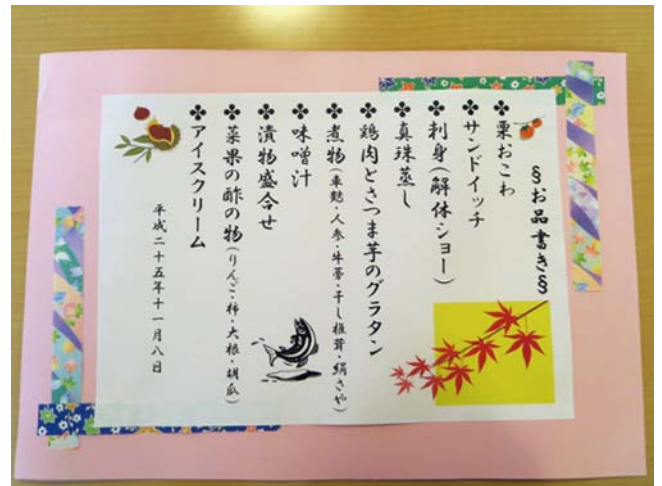 §お品書き§
✤栗おこわ
✤サンドイッチ
✤刺身(解体ショー)
✤真珠蒸し
✤鶏肉とさつま芋のグラタン
✤煮物(車麩・人参・牛蒡・干し椎茸・絹さや)
✤味噌汁
✤漬物盛合せ
✤菜果の酢の物(りんご・柿・大根・胡瓜)
✤アイスクリーム
平成二十五年十一月八日